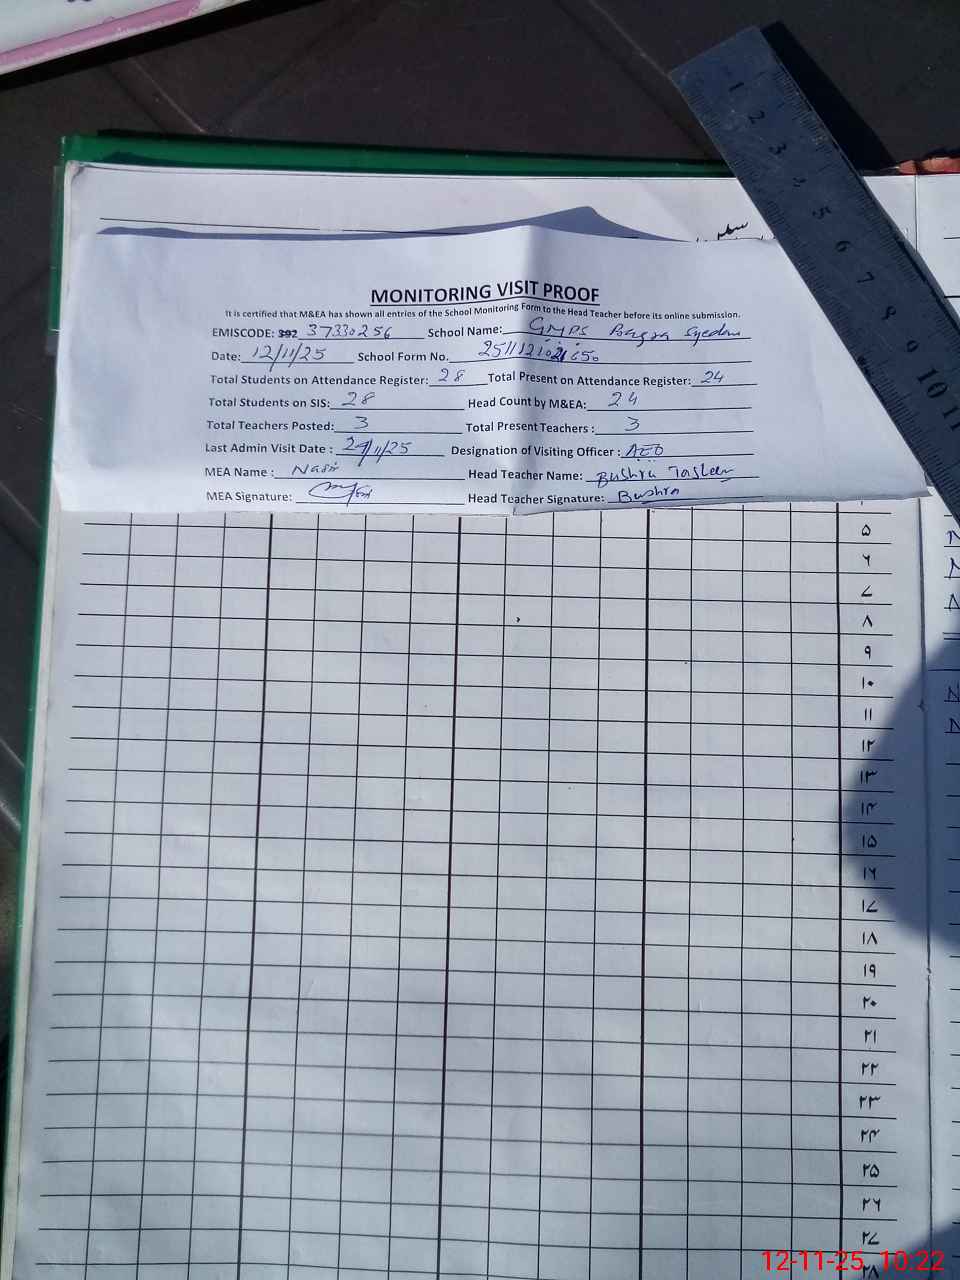 1 2 3 3 5 6 7 8 9 10 11
MONITORING VISIT PROOF
It is certified that M&EA has shown all entries of the School Monitoring Form to the Head Teacher before its online submission.
EMISCODE: 37330256 School Name: GMPS Syedan
Date: 12/11/25 School Form No.
Total Students on Attendance Register: 28 Total Present on Attendance Register: 24
Total Students on SIS: 28 Head Count by M&EA: 24
Total Teachers Posted: 3 Total Present Teachers : 3
Last Admin Visit Date : Designation of Visiting Officer : AEO
MEA Name : Nasir Head Teacher Name: Bushra Tasleem
MEA Signature: Head Teacher Signature: Bushra
۵
۶
۷
۸
۹
۱۰
۱۱
۱۲
۱۳
۱۴
۱۵
۱۶
۱۷
۱۸
۱۹
۲۰
۲۱
۲۲
۲۳
۲۴
۲۵
۲۶
۲۷
۲۸
12-11-25 10:22